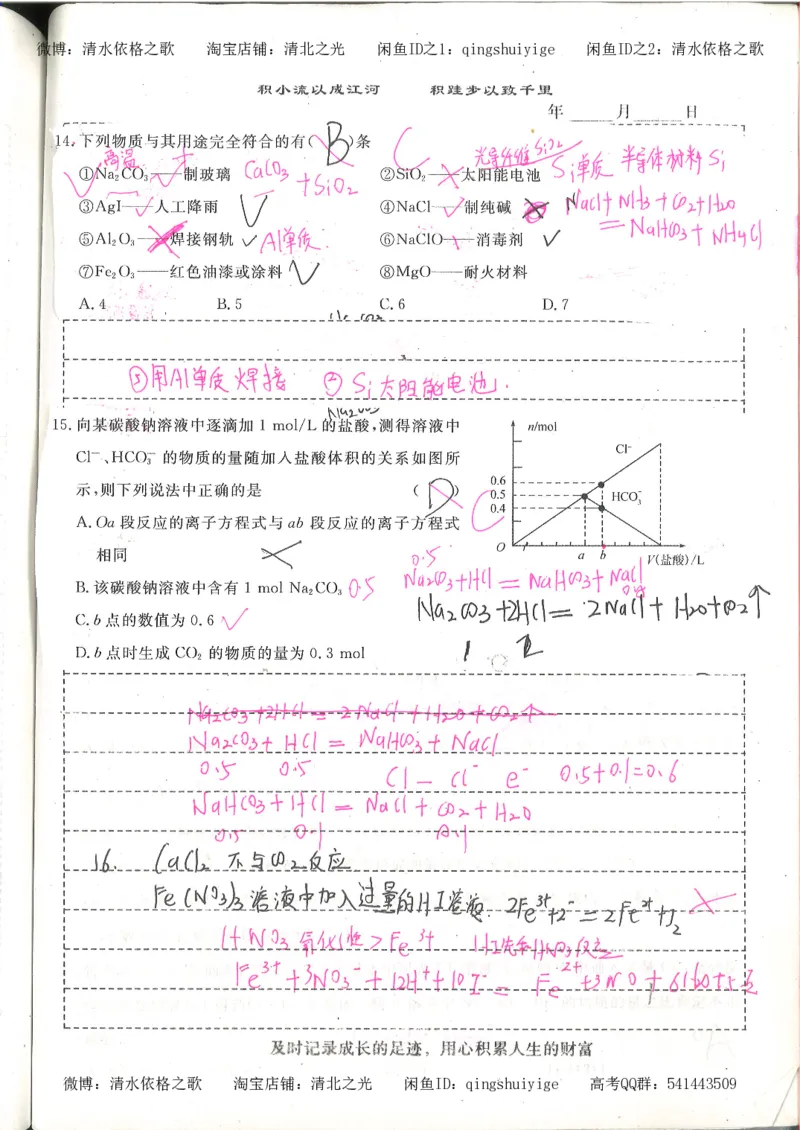 微博：清水依格之歌 淘宝店铺：清北之光 闲鱼ID之1：qingshuiyige 闲鱼ID之2：清水依格之歌
积小流以成江河 积跬步以致千里
年 月 日
14.下列物质与其用途完全符合的有( B )条
高温 C 光导纤维 SiO2
①Na₂CO₃——制玻璃 CaCO3 + SiO2 ②SiO₂——太阳能电池 Si单质 半导体材料 Si
③AgI——人工降雨 ④NaCl——制纯碱 NaCl + NH3 + CO2 + H2O
= NaHCO3 + NH4Cl
⑤Al₂O₃——焊接钢轨 Al单质. ⑥NaClO——消毒剂
⑦Fe₂O₃——红色油漆或涂料 ⑧MgO——耐火材料
A.4 B.5 C.6 D.7
⑤用Al单质焊接 ② Si太阳能电池.
Na2CO3
15.向某碳酸钠溶液中逐滴加 1 mol/L 的盐酸,测得溶液中
Cl⁻、HCO₃⁻ 的物质的量随加入盐酸体积的关系如图所
示,则下列说法中正确的是 ( D ) C
A.Oa 段反应的离子方程式与 ab 段反应的离子方程式
相同
B.该碳酸钠溶液中含有 1 mol Na₂CO₃ 0.5
C.b 点的数值为 0.6
D.b 点时生成 CO₂ 的物质的量为 0.3 mol
n/mol
Cl⁻
0.6
0.5
0.4
HCO₃⁻
O a b V(盐酸)/L
0.5
Na2CO3+HCl = NaHCO3+NaCl
Na2CO3+2HCl = 2NaCl + H2O+CO2↑
1 2
Na2CO3+2HCl = 2NaCl + H2O + CO2↑
Na2CO3 + HCl = NaHCO3 + NaCl
0.5 0.5 Cl — Cl⁻ e⁻ 0.5+0.1=0.6
NaHCO3 + HCl = NaCl + CO2 + H2O
0.5 0.1 0.1
16. CaCl2 不与CO2反应
Fe(NO3)3溶液中加入过量的HI溶液. 2Fe³⁺+2I⁻=2Fe²⁺+I2
H+ NO3 氧化性 > Fe³⁺ HI先和HNO3反应
Fe³⁺ + 3NO3⁻ + 12H⁺ + 10I⁻ = Fe²⁺ +3NO + 6H2O+5I2
及时记录成长的足迹，用心积累人生的财富
微博：清水依格之歌 淘宝店铺：清北之光 闲鱼ID：qingshuiyige 高考QQ群：541443509